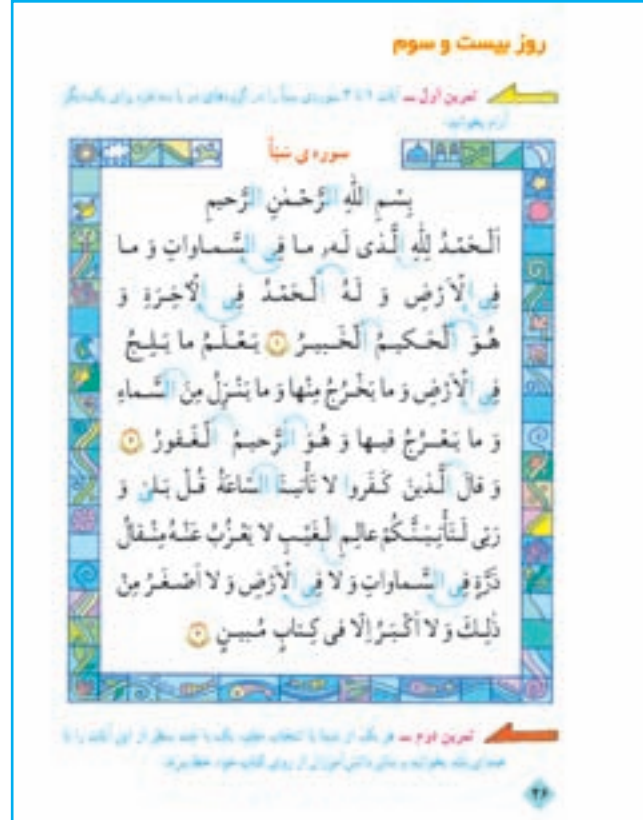 روز بیست و سوم
تمرین اول ــ آیات ۱ تا ۳ سوره‌ی سبأ را در گروه‌های دو یا سه نفره برای یکدیگر
آرام بخوانید.
سوره‌ی سَبَأ
بِسْمِ اللّٰهِ الرَّحْمٰنِ الرَّحیمِ
اَلْحَمْدُ لِلّٰهِ الَّذی لَهُ, ما فِی السَّماواتِ وَ ما
فِی الْاَرْضِ وَ لَهُ الْحَمْدُ فِی الْآخِرَةِ وَ
هُوَ الْحَکیمُ الْخَبیرُ ۱ یَعْلَمُ ما یَلِجُ
فِی الْاَرْضِ وَ ما یَخْرُجُ مِنْها وَ ما یَنْزِلُ مِنَ السَّماءِ
وَ ما یَعْرُجُ فیها وَ هُوَ الرَّحیمُ الْغَفورُ ۲
وَ قالَ الَّذینَ کَفَروا لا تَأْتینَا السّاعَةُ قُلْ بَلیٰ وَ
رَبّی لَتَأْتِیَنَّکُمْ عالِمِ الْغَیْبِ لا یَعْزُبُ عَنْهُ مِثْقالُ
ذَرَّةٍ فِی السَّماواتِ وَ لا فِی الْاَرْضِ وَ لا اَصْغَرُ مِنْ
ذٰلِکَ وَ لا اَکْبَرُ اِلّا فی کِتابٍ مُبینٍ ۳
تمرین دوم ــ هر یک از شما با انتخاب خود، یک یا چند سطر از این آیات را با
صدای بلند بخوانید و سایر دانش‌آموزان از روی کتاب خود خط ببرند.
۳۶